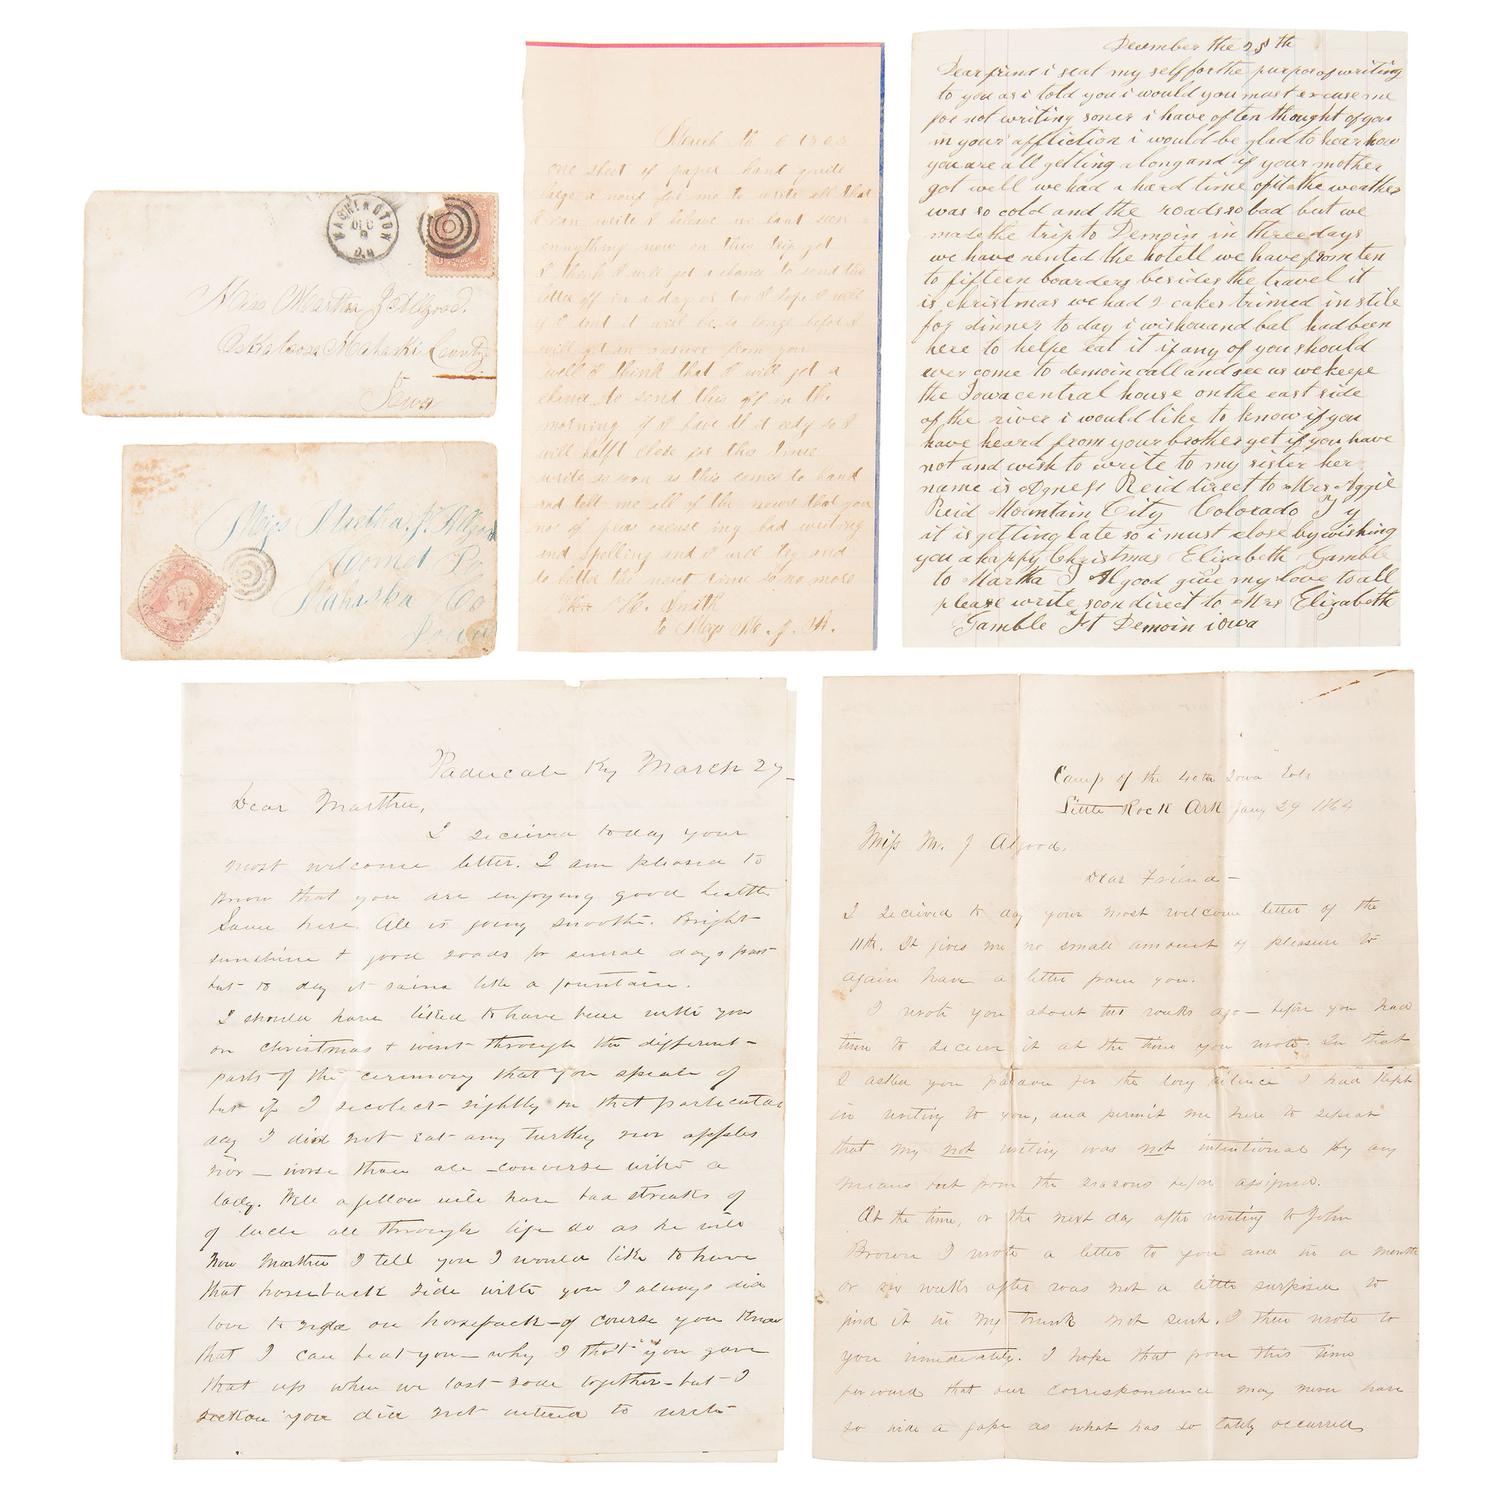 WASHINGTON
DEC
9
Miss Martha J Allgood.
Oskaloosa Mahaska County
Iowa
Miss Martha. J. Allgood
Comet P.
Mahaska Co
Iowa
March th 6 186
one sheet of paper haint quite
large a nuff for me to write all that
I can write I beleve we haint seen
ennything new on this trip yet
I think I will get a chance to send the
letter off in a day or too I hope I will
if I dont it will be so longe befor I
will get an answer from you
well I think that I will get a
chance to send this off in the
morning if I have it redy so I
will hafft close for this time
write as soon as this comes to hand
and tell me all of the newse that you
no of pleas excuse my bad writing
and spelling and I will try and
do better the next time so no more
Wm H. Smith
to Miss M. J. A.
December the 25th
Dear frind i seat my self for the purpos of writing
to you as i told you i would you must excuse me
for not writing soner i have often thought of you
in your affliction i would be glad to hear how
you are all getting along and if your mother
got well we had a hard time of it the weather
was so cold and the roads so bad but we
made the trip to Demoin in three days
we have rented the hotell we have from ten
to fifteen boarders besides the travel it
is christmas we had 2 cakes trimed in stile
for dinner to day i wish you and bal had been
here to helpe eat it if any of you should
ever come to demoin call and see us we keepe
the Iowa central house on the east side
of the river i would like to know if you
have heard from your brother yet if you have
not and wish to write to my sister her
name is Agness Reid direct to Mrs Aggie
Reid Mountain City Colorado Ty
it is getting late so i must close by wishing
you a happy Christmas Elizabeth Gamble
to Martha J Algood give my love to all
please write soon direct to Mrs Elizabeth
Gamble Ft Demoin iowa
Paducah Ky March 27
Dear Marthu,
I received today your
most welcome letter. I am pleased to
know that you are enjoying good health
Same here. All is going smooth. Bright
sunshine & good roads for several days past
but to day it rains like a fountain.
I should have liked to have been with you
on christmas & went through the different
parts of the ceremony that you speak of
but if I recolect rightly on that particular
day I did not eat any turkey nor apples
nor — worse than all — converse with a
lady. Well a fellow will have bad streaks of
of luck all through life do as he will
Now Marthu I tell you I would like to have
that horseback ride with you I always did
love to ride on horseback — of course you know
that I can beat you — why I thot you gave
that up when we last rode together — but I
reckon you did not intend to write
Camp of the 40th Iowa Vols
Little Rock Ark Jany 29 1864
Miss M. J Algood.
Dear Friend —
I received to day your most welcome letter of the
11th. It gives me no small amount of pleasure to
again have a letter from you.
I wrote you about two weeks ago — before you had
time to receive it at the time you wrote. In that
I asked you pardon for the long silence I had kept
in writing to you, and permit me here to repeat
that my not writing was not intentional by any
means but from the reasons before assigned.
At the time, or the next day after writing to John
Brown I wrote a letter to you and in a month
or six weeks after was not a little surprised to
find it in my trunk not sent. I then wrote to
you immediately. I hope that from this time
forward that our correspondence may never have
so wide a gap as what has so lately occurred